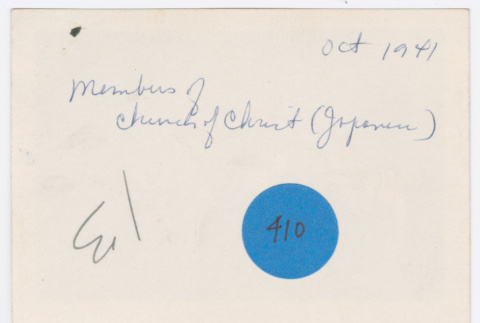 Oct 1941
Members of
Church of Christ (Japanese)
410